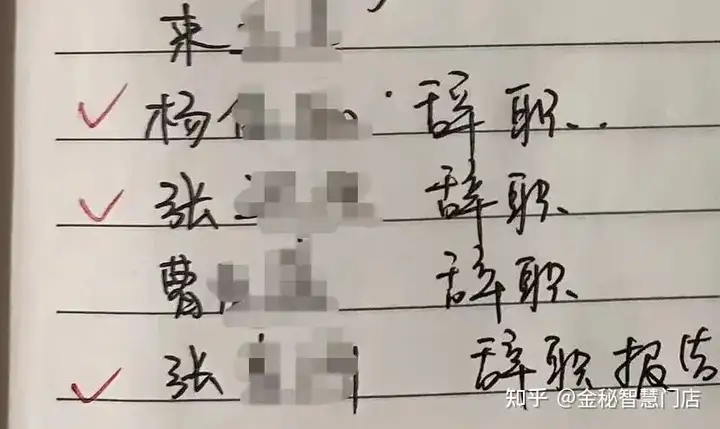 来
杨 辞职..
张 辞职
曹 辞职
张 辞职报告
知乎 @金秘智慧门店